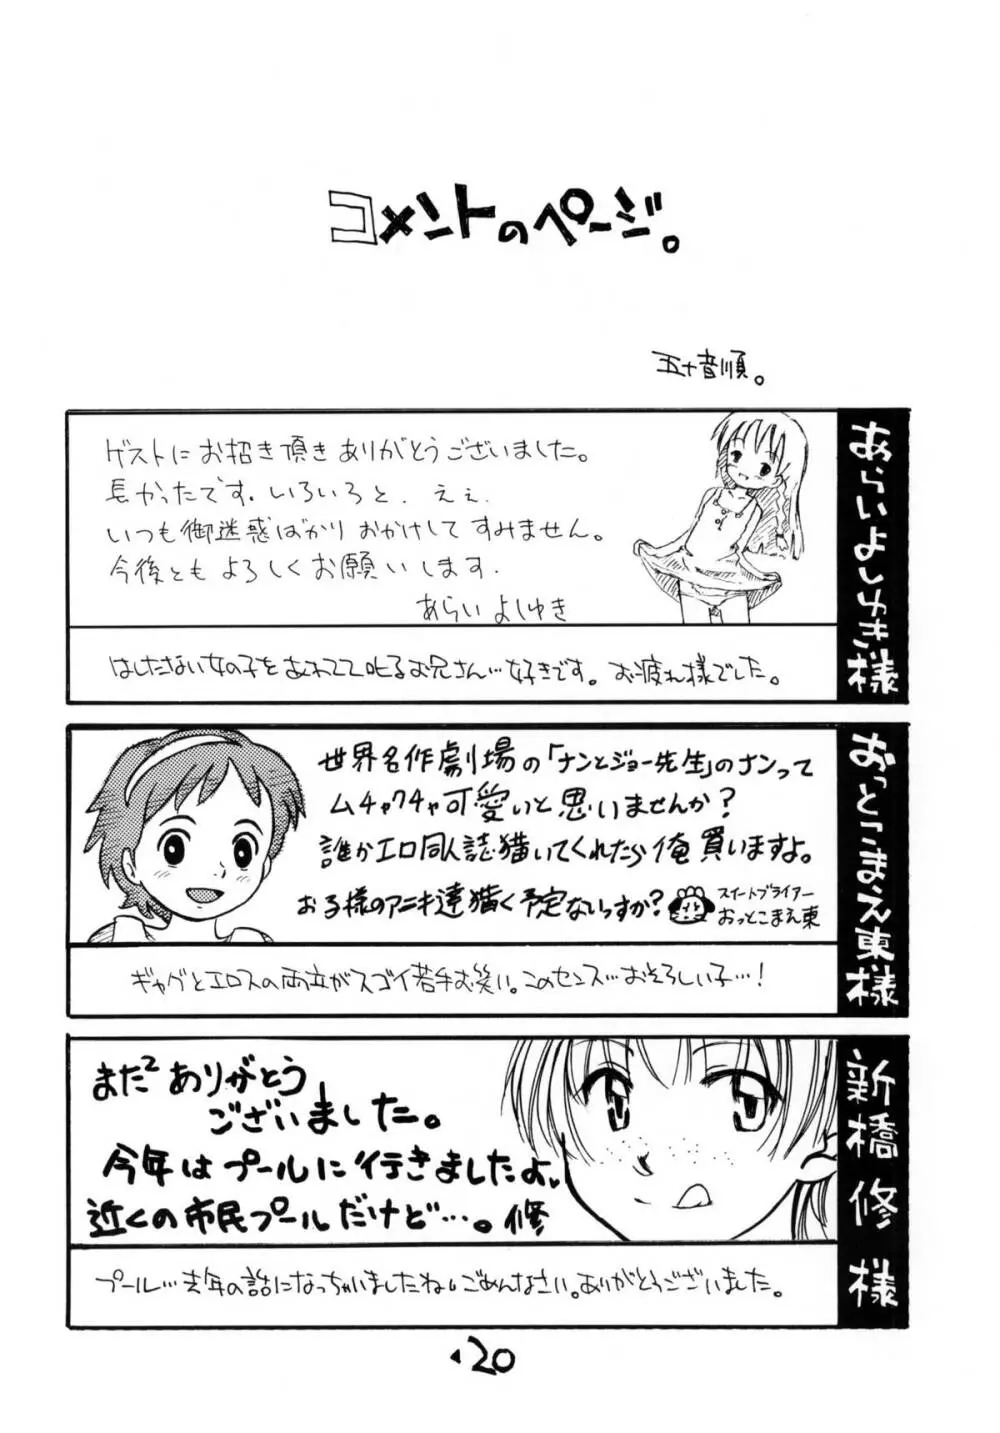 コメントのページ。
五十音順。
ゲストにお招き頂きありがとうございました。
長かったです。いろいろと、ええ、
いつも御迷惑ばかりおかけしてすみません。
今後ともよろしくお願いします。
あらいよしゆき
はしたない女の子をあわてて叱るお兄さん…好きです。お疲れ様でした。
あらいよしゆき様
世界名作劇場の「ナンとジョー先生」のナンって
ムチャクチャ可愛いと思いませんか?
誰かエロ同人誌描いてくれたら俺買いますよ。
お子様のアニキ達描く予定ないっすか?
スイートブライアー
おっとこまえ東
ギャグとエロスの両立がスゴイ若手お笑い。このセンス…おそろしい子…!
おっとこまえ東様
まだ2ありがとう
ございました。
今年はプールに行きましたよ。
近くの市民プールだけど…。修
プール…去年の話になっちゃいましたねいごめんなさい。ありがとうございました。
新橋修様
20